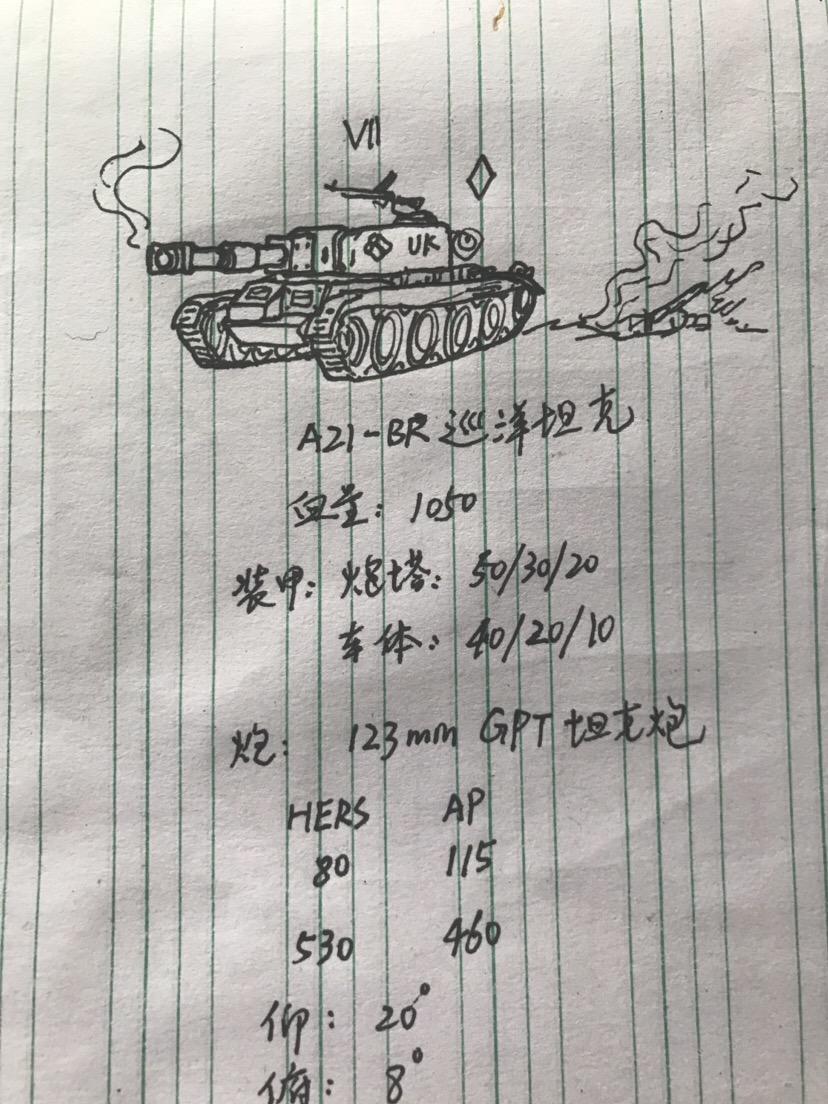 VII
UK
A21-BR 巡洋坦克
血量: 1050
装甲: 炮塔: 50/30/20
车体: 40/20/10
炮: 123mm GPT 坦克炮
HERS AP
80 115
530 460
仰: 20°
俯: 8°